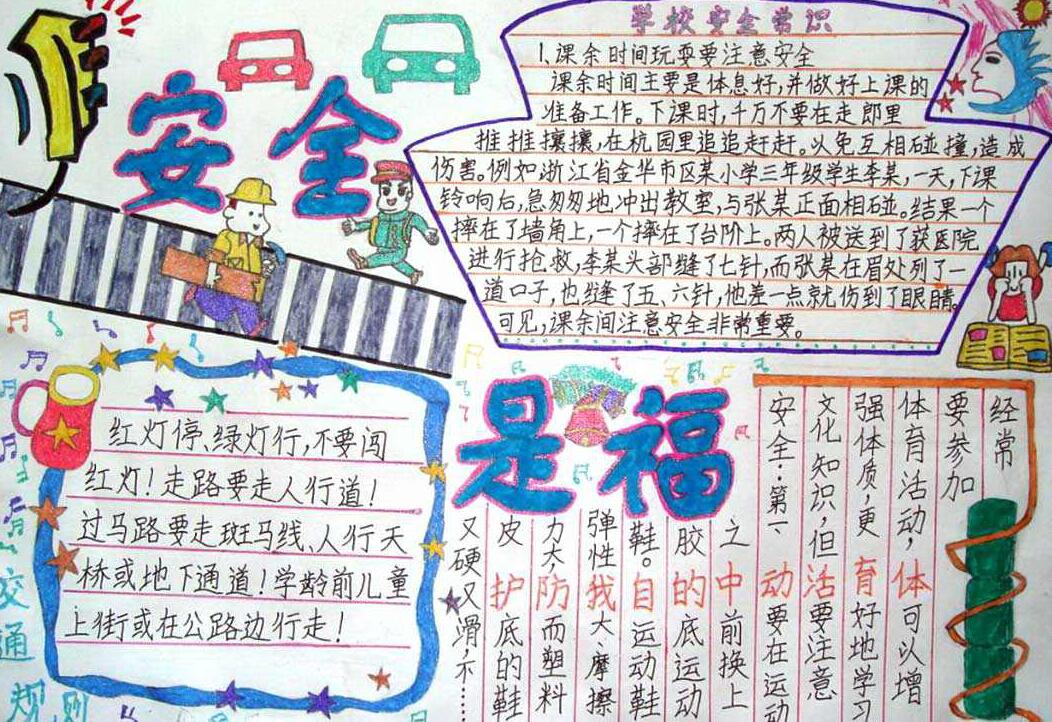 安全
是福
学校安全常识
1、课余时间玩耍要注意安全
课余时间主要是体息好,并做好上课的
准备工作。下课时,千万不要在走郎里
推推攘攘,在杭园里追追赶赶。以免互相碰撞,造成
伤害。例如浙江省金华市区某小学三年级学生李某,一天,下课
铃响后,急匆匆地冲出教室,与张某正面相碰。结果一个
摔在了墙角上,一个摔在了台阶上。两人被送到了获医院
进行抢救,李某头部缝了七针,而张某在眉处列了一
道口子,也缝了五、六针,他差一点就伤到了眼睛。
可见,课余间注意安全非常重要。
红灯停、绿灯行,不要闯
红灯!走路要走人行道!
过马路要走斑马线、人行天
桥或地下通道!学龄前儿童
上街或在公路边行走!
交通规则
经常
要参加
体育活动,体可以增
强体质,更育好地学习
文化知识,但活要注意
安全:第一、动要在运动
之中前换上
胶的底运动
鞋。自运动鞋
弹性我大、摩擦
力大,防而塑料
皮护底的鞋
又硬又滑,不……